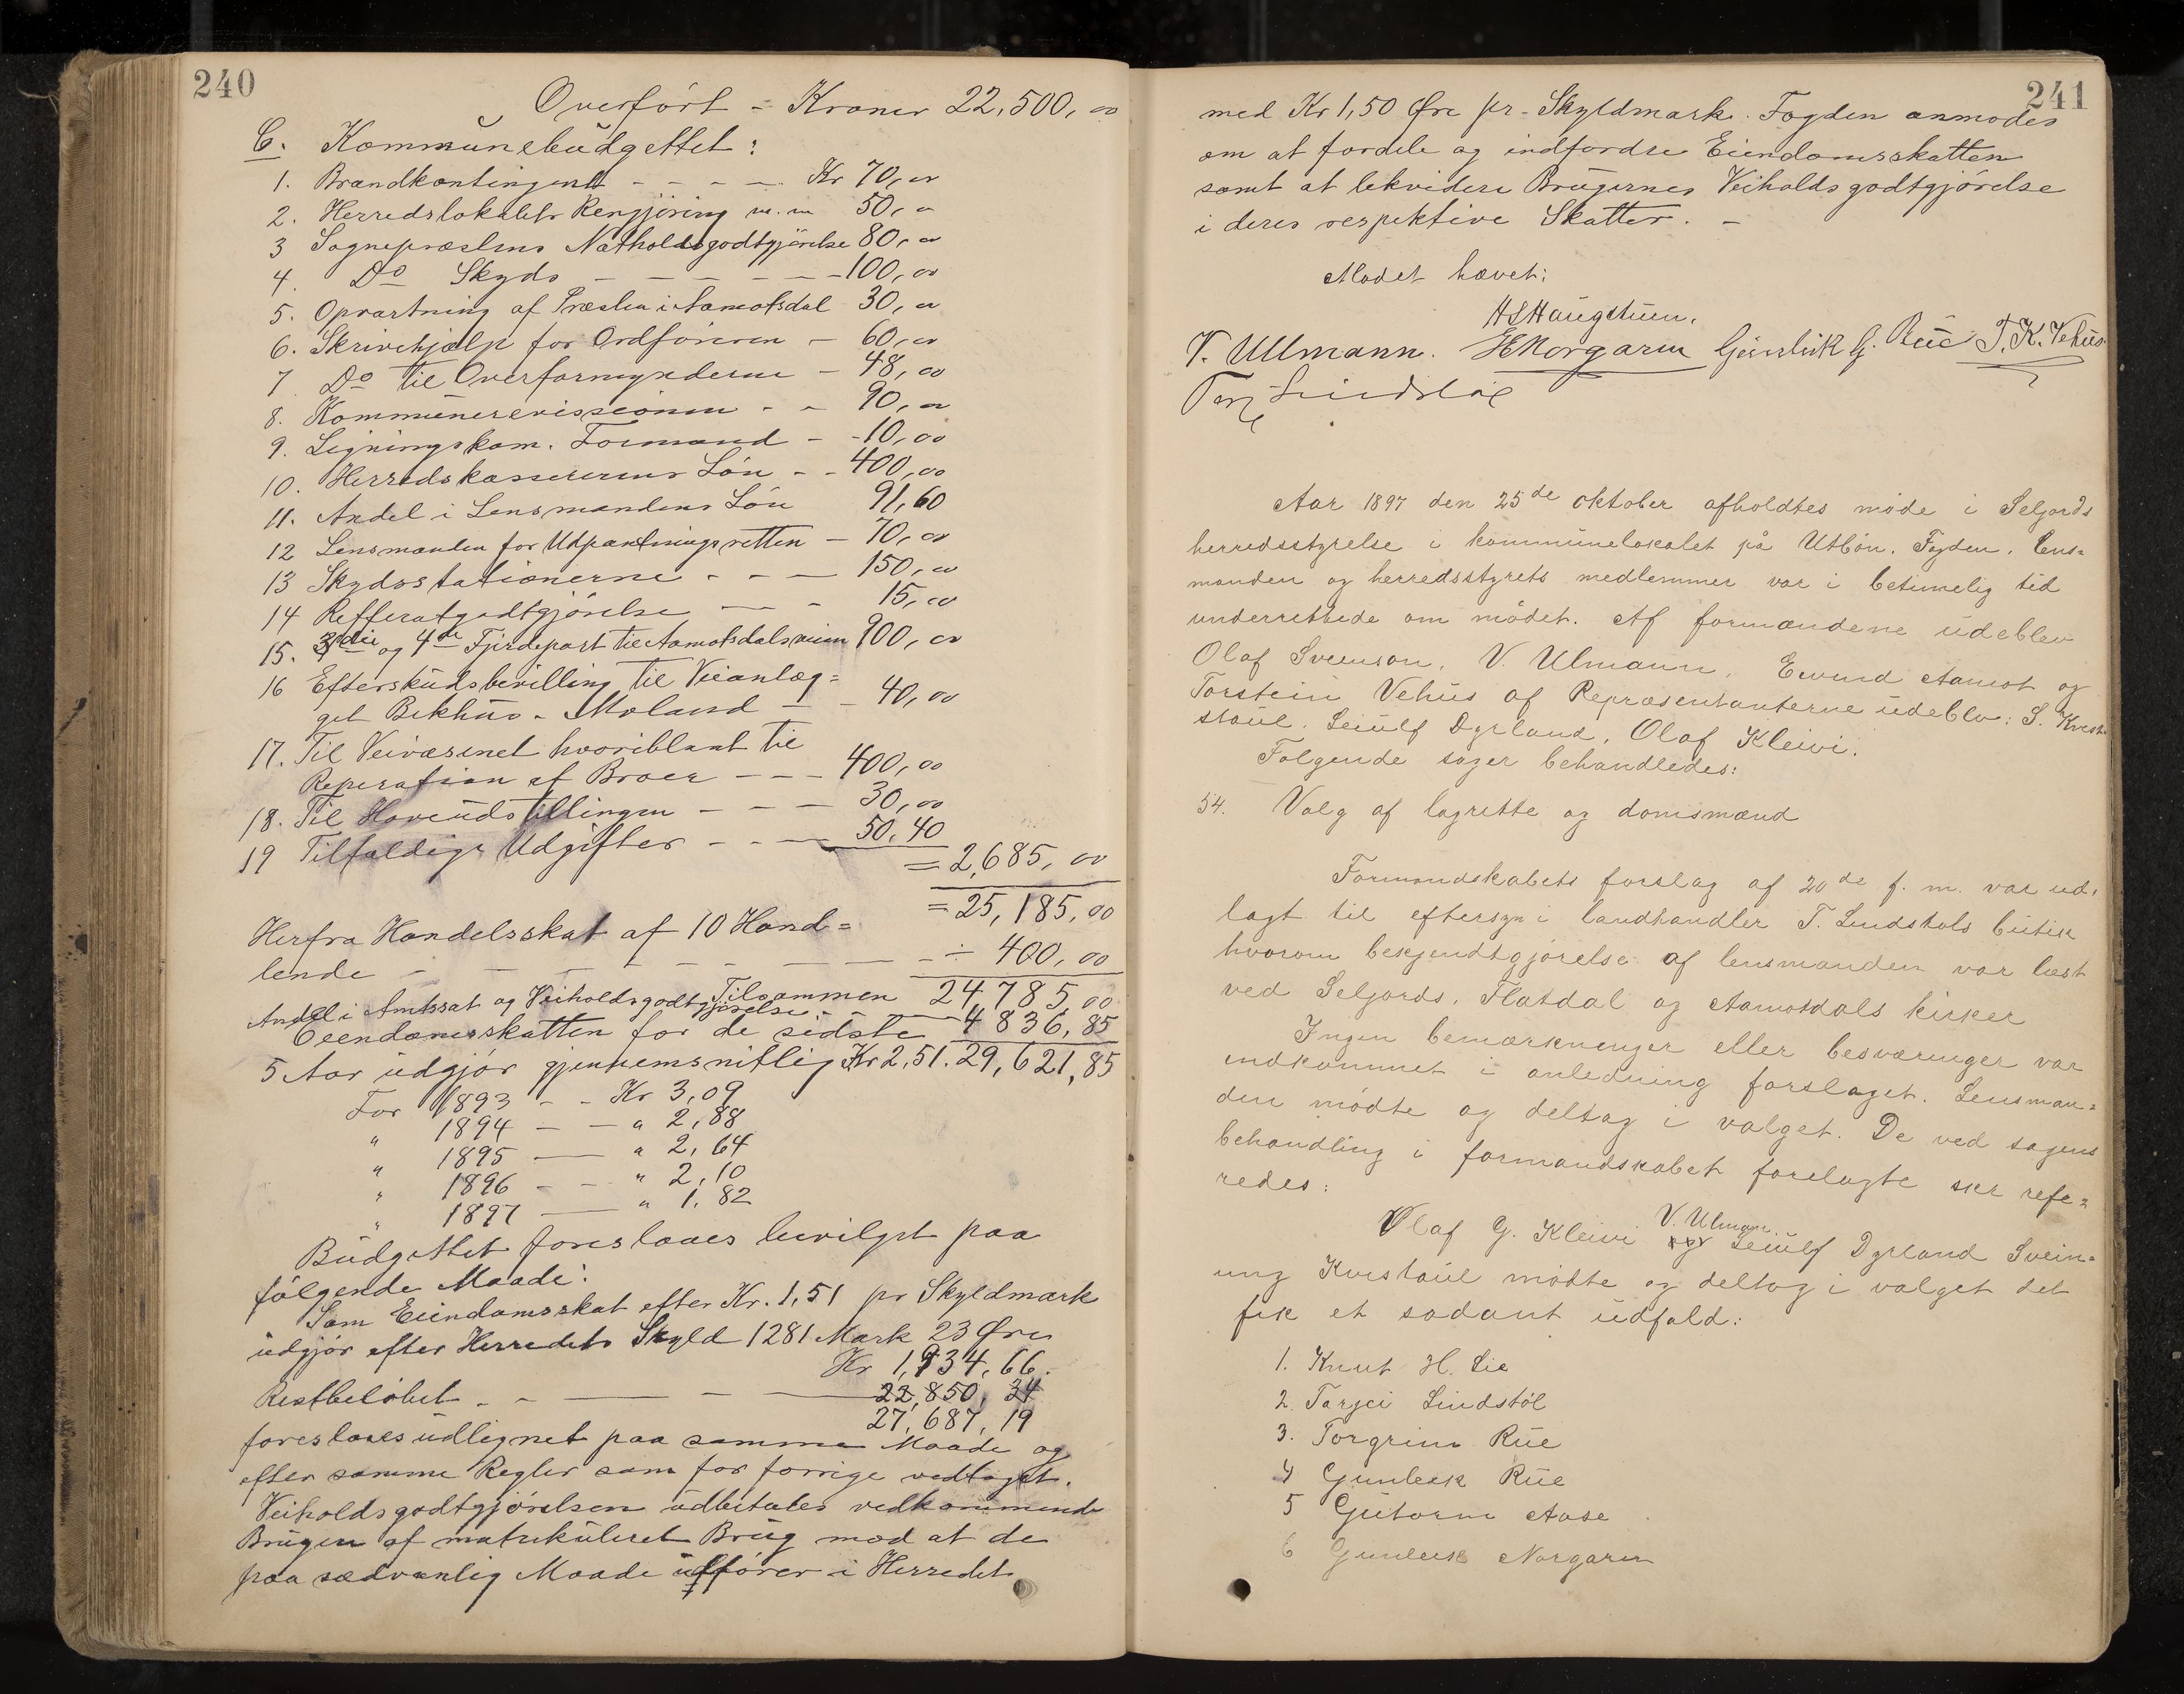 240
Overført = Kroner 22,500,00
C. Kommunebudgettet:
1. Brandkontingent - - - - Kr 70,00
2. Herredslokalets Rengjøring m.m 50,00
3 Sognepræstens Natholdsgodtgjørelse 80,00
4. Do Skyds - - - - - 100,00
5. Opvartning af Præsten i Aamotsdal 30,00
6. Skrivehjælp for Ordføreren - 60,00
7 Do til Overformynderne - 48,00
8. Kommunerevissionen - - 90,00
9. Ligningskom. Formand - - 10,00
10. Herredskassererens Løn - - 400,00
11. Andel i Lensmandens Løn 91,60
12 Lensmanden for Udpantningsretten - 70,00
13 Skydsstationerne - - - 150,00
14 Refferatgodtgjørelse - - 15,00
15. 3die og 4de Fjerdepart til Aamotsdalsveien 900,00
16 Efterskudsbevilling til Veianlæg=
get Bekhus - Moland - - 40,00
17. Til Veivæsenet hvoriblandt til
Reperation af Broer - - - 400,00
18. Til Haveudstillingen - - - 30,00
19 Tilfældige Udgifter - - - 50,40
= 2,685,00
= 25,185,00
Herfra Handelsskat af 10 Hand=
lende - - - - - - - ÷ 400,00
Tilsammen 24,785,00
Andel i Amtssat og Veiholdsgodtgjørelse - - 4836,85
Eiendomsskatten for de sidste
5 Aar udgjør gjennemsnitlig Kr 2,51. 29,621,85
For 1893 - - Kr 3,09
" 1894 - - " 2,88
" 1895 - " 2,64
" 1896 - - " 2,10
" 1897 - " 1,82
Budgettet foreslaaes bevilget paa
følgende Maade:
Som Eiendomsskat efter Kr. 1,51 pr Skyldmark
udgjør efter Herredets Skyld 1281 Mark 23 Øre
Kr 1,934,66.
Restbeløbet - - - - 22,850,34
27,687,19
foreslaaes udlignet paa samme Maade og
efter samme Regler som for forrige vedtaget.
Veiholdsgodtgjørelsen udbetales vedkommende
Bruger af matrikuleret Brug mod at de
paa sædvanlig Maade udfører i Herredet
241
med Kr 1,50 Øre pr. Skyldmark. Fogden anmodes
om at fordele og indfordre Eiendomsskatten
samt at lekvidere Brugernes Veiholdsgodtgjørelse
i deres respektive Skatter. -
Mødet hævet:
HSHaugstuen.
V. Ullmann. HNorgaren Gunleik G. Rue T. K. Vehus
Lindstøl
Aar 1897 den 25de oktober afholdtes møde i Seljords
herredsstyrelse i kommunelokalet på Utbøn. Fogden, lens=
manden og herredsstyrets medlemmer var i betimelig tid
underrettede om mødet. Af formændene udeblev
Olaf Sveinson, V. Ulmann, Eivind Aamot og
Torstein Vehus af Repræsentanterne udeblev: S. Kvest=
støul, Seiulf Dyrland, Olaf Kleivi.
Følgende sager behandledes:
54. Valg af lagrette og domsmænd
Formandskabets forslag af 20de f. m. var ud=
lagt til eftersyn i landhandler T. Lindstøls butik
hvorom bekjendtgjørelse af lensmanden var læst
ved Seljords, Flatdal og Aamotsdals kirker
Ingen bemærkninger eller besværinger var
indkommet i anledning forslaget. Lensman=
den mødte og deltog i valget. De ved sagens
behandling i formandskabet forelagte skr refe=
redes:
Olaf G. Kleivi V. Ulmann Seiulf Dyrland Svein=
ung Kvestøul mødte og deltog i valget det
fik et sådant udfald:
1. Knut H. Lie
2. Tarjei Lindstøl
3. Torgrim Rue
4 Gunleik Rue
5 Gutorm Aase
6 Gunleik Norgaren